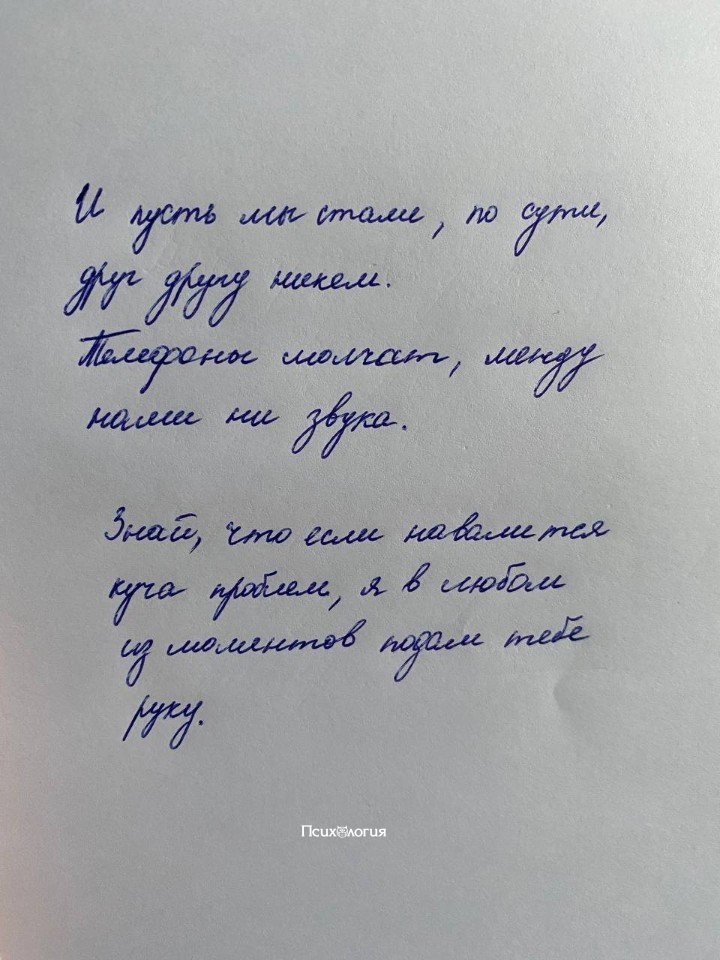 И пусть мы стали, по сути,
друг другу никем.
Телефоны молчат, между
нами ни звука.
Знай, что если навалится
куча проблем, я в любом
из моментов подам тебе
руку.
Психология